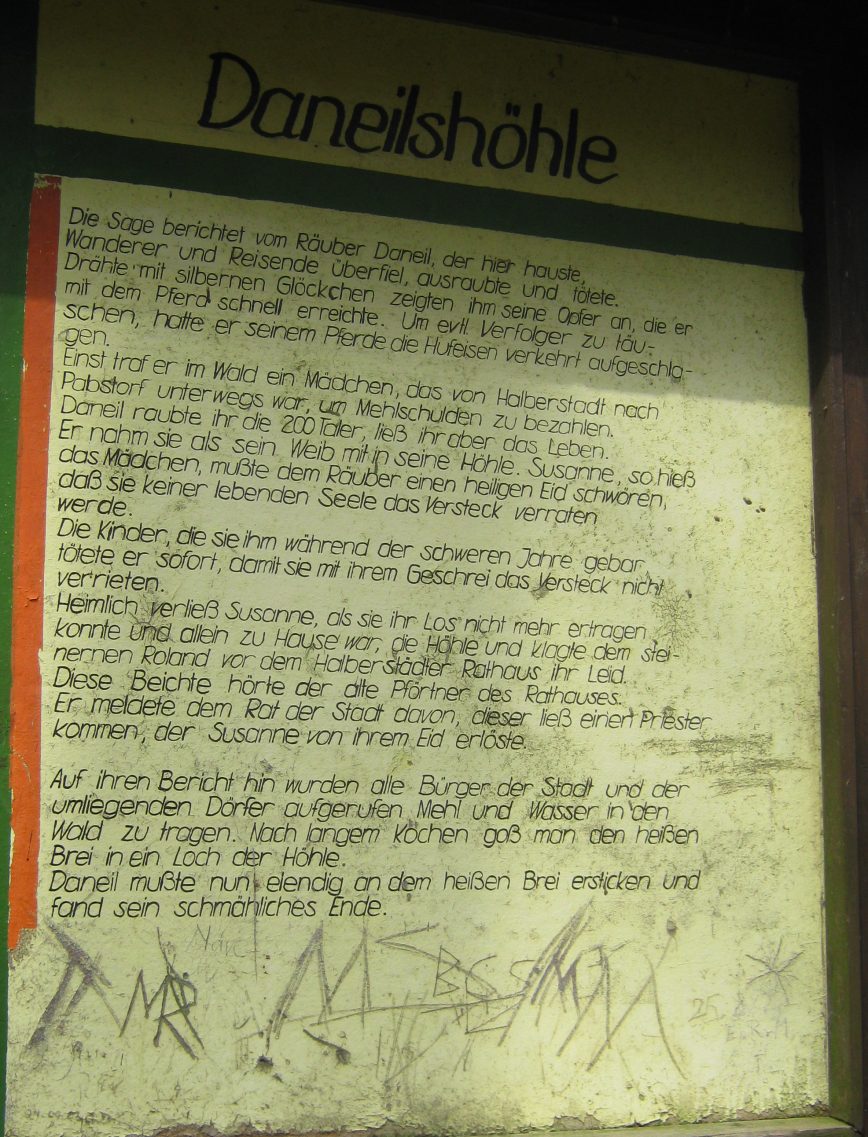 Daneilshöhle
Die Sage berichtet vom Räuber Daneil, der hier hauste,
Wanderer und Reisende überfiel, ausraubte und tötete.
Drähte mit silbernen Glöckchen zeigten ihm seine Opfer an, die er
mit dem Pferd schnell erreichte. Um evtl. Verfolger zu täu-
schen, hatte er seinem Pferde die Hufeisen verkehrt aufgeschla-
gen.
Einst traf er im Wald ein Mädchen, das von Halberstadt nach
Pabstorf unterwegs war, um Mehlschulden zu bezahlen.
Daneil raubte ihr die 200 Taler, ließ ihr aber das Leben.
Er nahm sie als sein Weib mit in seine Höhle. Susanne, so hieß
das Mädchen, mußte dem Räuber einen heiligen Eid schwören,
daß sie keiner lebenden Seele das Versteck verraten
werde.
Die Kinder, die sie ihm während der schweren Jahre gebar,
tötete er sofort, damit sie mit ihrem Geschrei das Versteck nicht
verrieten.
Heimlich verließ Susanne, als sie ihr Los nicht mehr ertragen
konnte und allein zu Hause war, die Höhle und klagte dem stei-
nernen Roland vor dem Halberstädter Rathaus ihr Leid.
Diese Beichte hörte der alte Pförtner des Rathauses.
Er meldete dem Rat der Stadt davon, dieser ließ einen Priester
kommen, der Susanne von ihrem Eid erlöste.
Auf ihren Bericht hin wurden alle Bürger der Stadt und der
umliegenden Dörfer aufgerufen Mehl und Wasser in den
Wald zu tragen. Nach langem Kochen goß man den heißen
Brei in ein Loch der Höhle.
Daneil mußte nun elendig an dem heißen Brei ersticken und
fand sein schmähliches Ende.